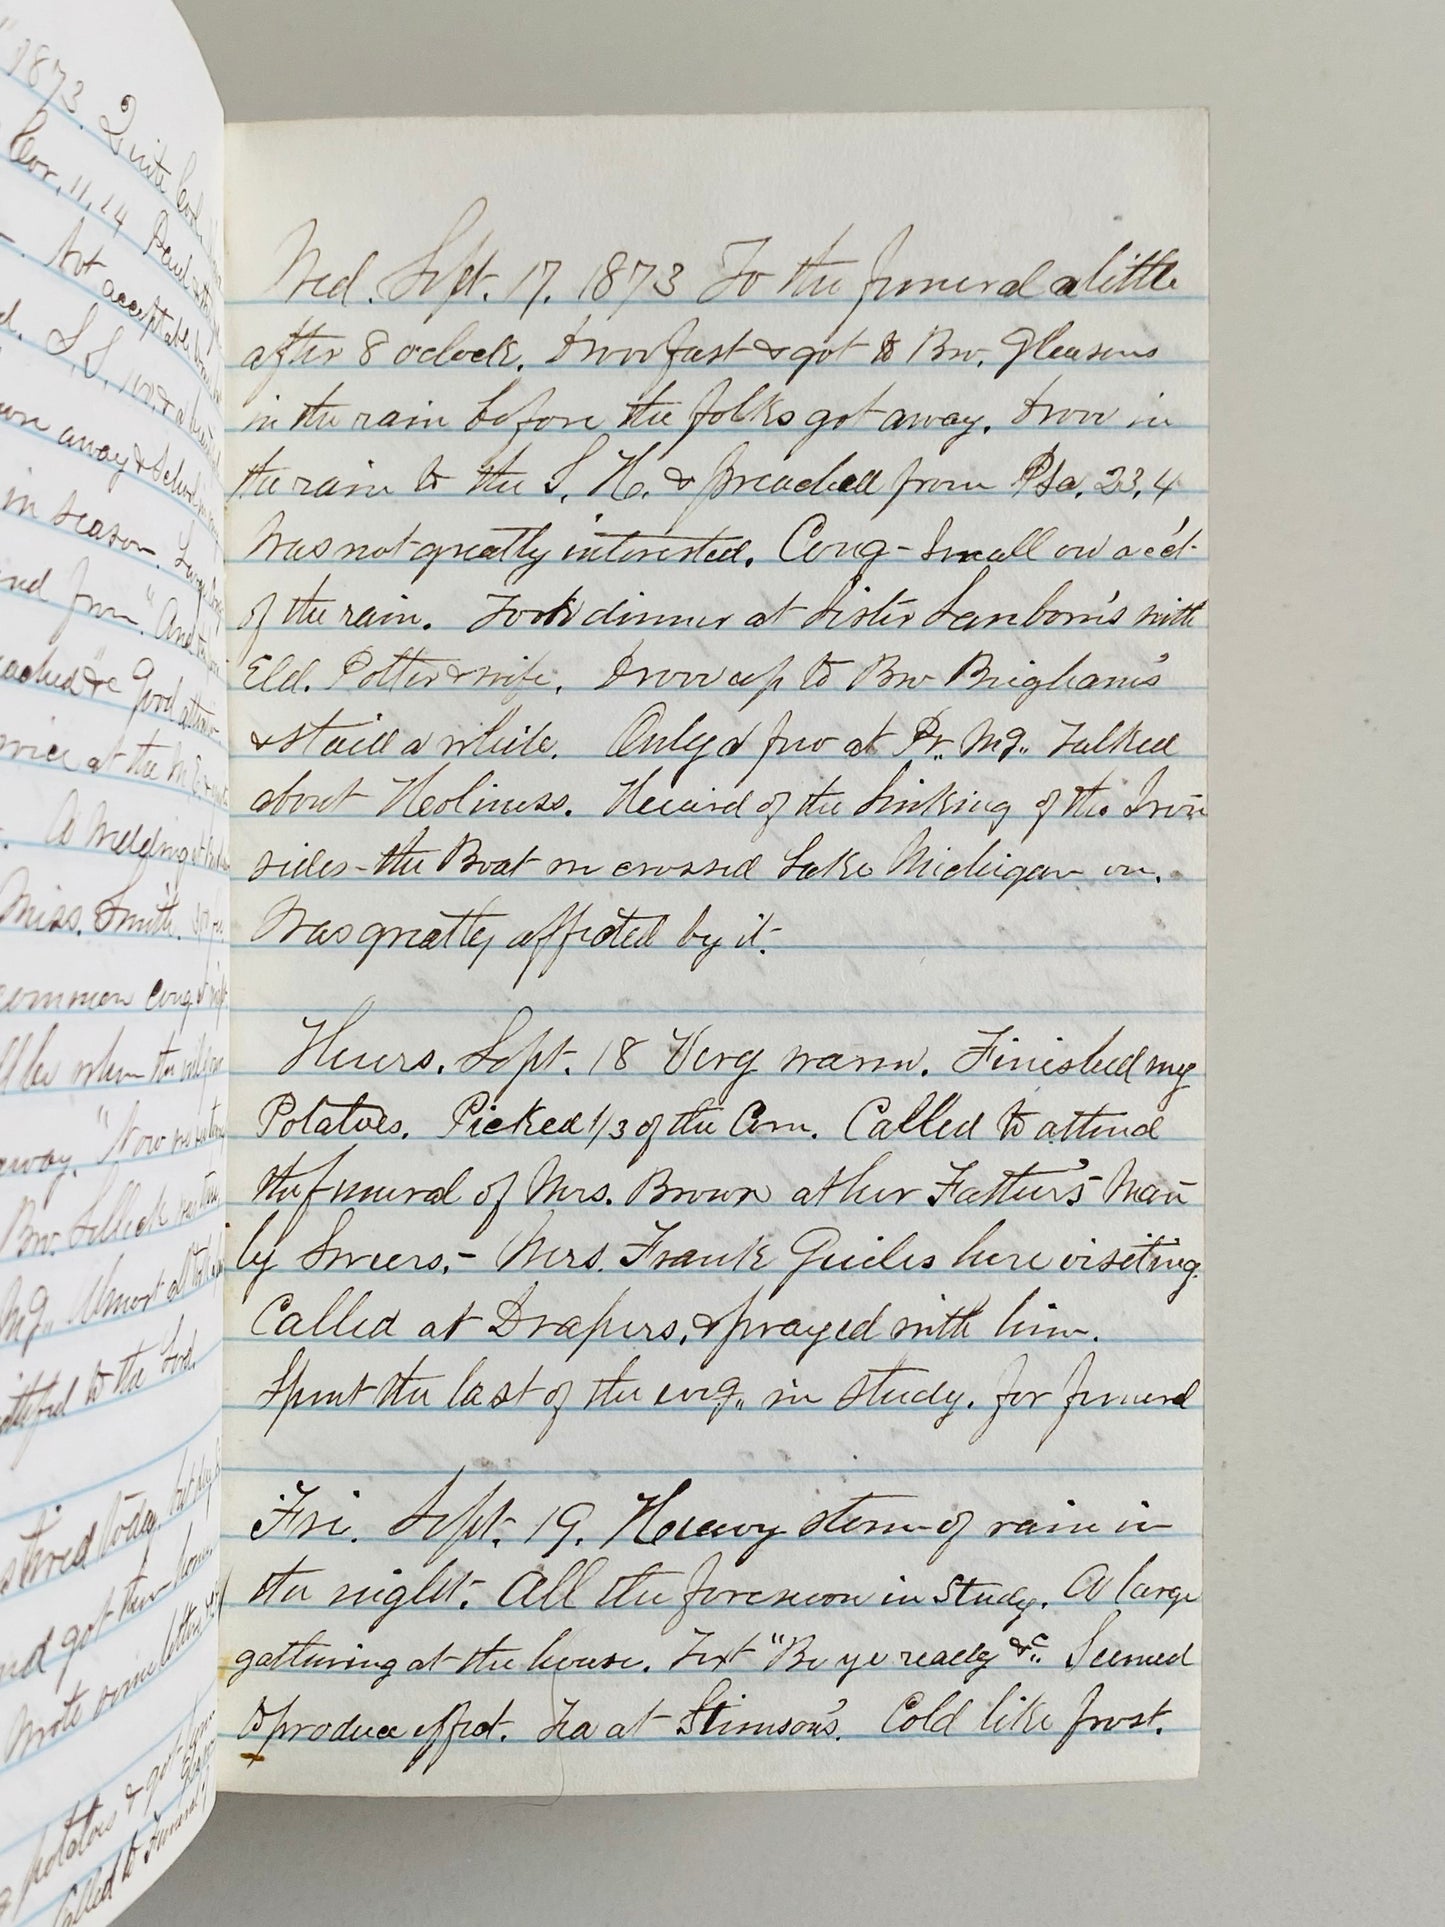 1873. Quite
Cor. 11,14 Paul
Not acceptable
S. S.
away & School
in season.
and from "And
&c Good
at the M. E.
A Wedding at
Miss. Smith.
common cong. at
when the
away. "Now
Bro. Sellick
Mg,, Almost all
to the Lord.
today.
and got
Wrote nine letters
potatoes & got
Called to Funeral
Wed. Sept. 17. 1873 To the funeral a little
after 8 oclock. Drove fast & got to Bro. Gleasons
in the rain before the folks got away. Drove in
the rain to the S. H. & preached from Psa. 23,4
Was not greatly interested. Cong- Small on acct-
of the rain. Took dinner at Sister Sanborn's with
Eld. Potter & wife. Drove up to Bro Brigham's
& staid a while. Only a few at Pr. Mg,, Talked
about Holiness. Heard of the Sinking of the Iron
sides - the Boat we crossed Lake Michigan on.
Was greatly affected by it.
Thurs. Sept. 18 Very warm. Finished my
Potatoes. Picked 1/3 of the Corn. Called to attend
the funeral of Mrs. Brown at her Father's Near
by Sweers,- Mrs. Frank Guiles here visiting.
Called at Drapers, & prayed with him.
Spent the last of the evg,, in study. for funeral
Fri. Sept. 19. Heavy storm of rain in
the night. All the forenoon in Study. A large
gathering at the house. Text "Be ye ready &c,, Seemed
to produce effect. Tea at Stimson's. Cold like frost.